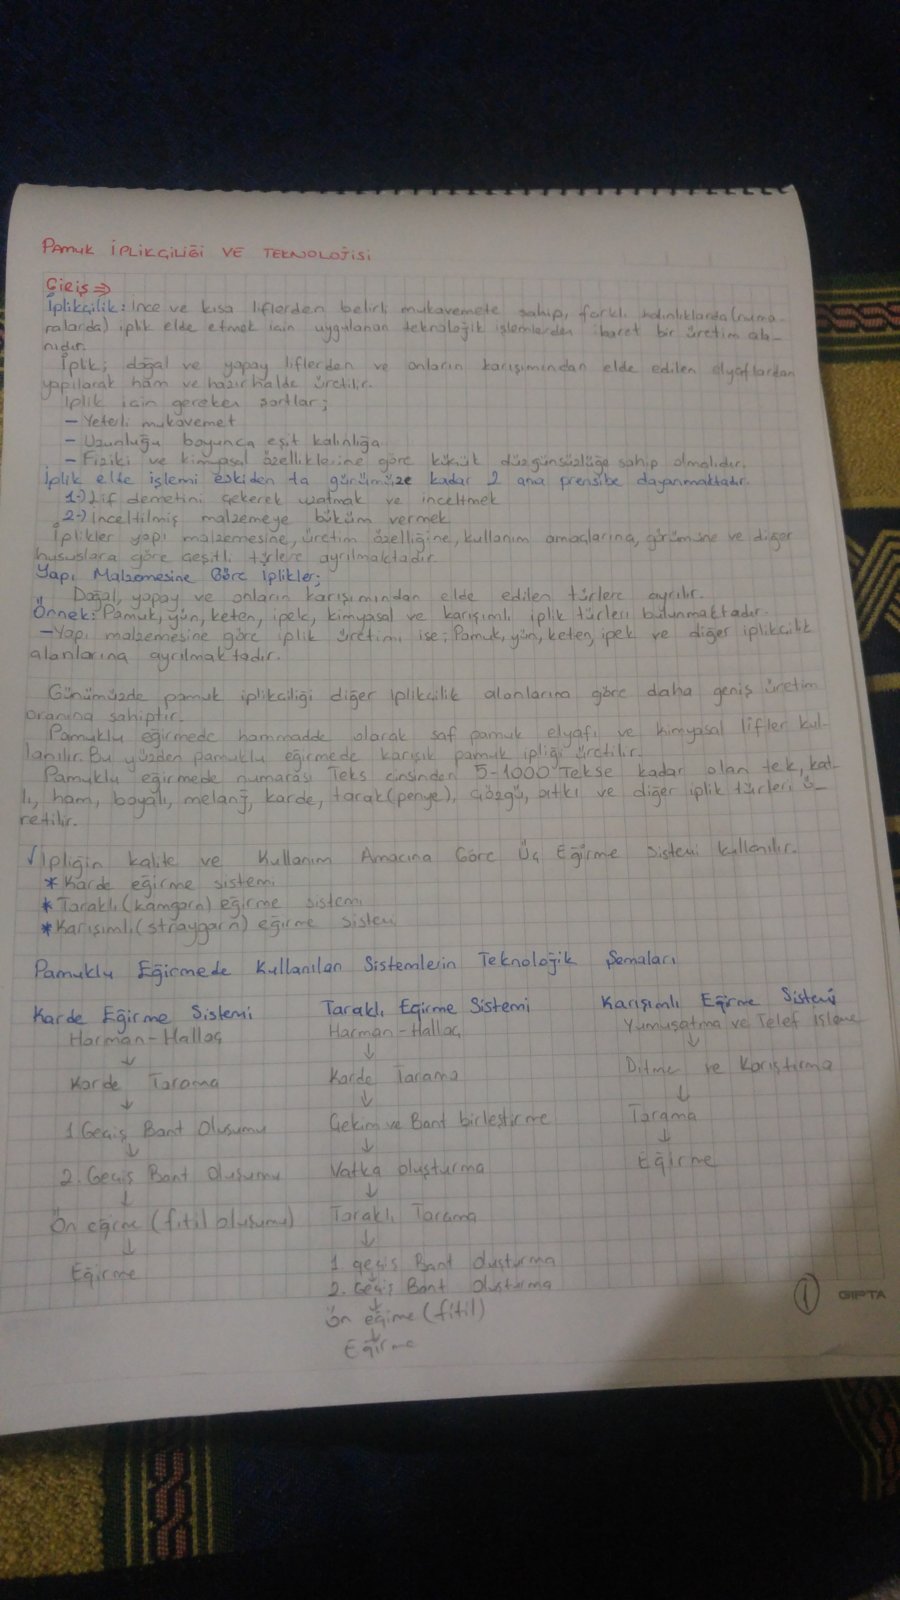 PAMUK İPLİKÇİLİĞİ VE TEKNOLOJİSİ
GİRİŞ ⇒
İplikçilik: İnce ve kısa liflerden belirli mukavemete sahip, farklı kalınlıklarda (numa-
ralarda) iplik elde etmek için uygulanan teknolojik işlemlerden ibaret bir üretim ala-
nıdır.
İplik; doğal ve yapay liflerden ve onların karışımından elde edilen elyaflardan
yapılarak ham ve hazır halde üretilir.
İplik için gereken şartlar;
- Yeterli mukavemet
- Uzunluğu boyunca eşit kalınlığa
- Fiziki ve kimyasal özelliklerine göre küçük düzgünsüzlüğe sahip olmalıdır.
İplik elde işlemi eskiden ta günümüze kadar 2 ana prensibe dayanmaktadır.
1-) Lif demetini çekerek uzatmak ve inceltmek
2-) İnceltilmiş malzemeye büküm vermek
İplikler yapı malzemesine, üretim özelliğine, kullanım amaçlarına, görümüne ve diğer
hususlara göre çeşitli türlere ayrılmaktadır.
Yapı Malzemesine Göre İplikler;
Doğal, yapay ve onların karışımından elde edilen türlere ayrılır.
Örnek: Pamuk, yün, keten, ipek, kimyasal ve karışımlı iplik türleri bulunmaktadır.
- Yapı malzemesine göre iplik üretimi ise; Pamuk, yün, keten, ipek ve diğer iplikcilik
alanlarına ayrılmaktadır.
Günümüzde pamuk iplikciliği diğer iplikcilik alanlarına göre daha geniş üretim
oranına sahiptir.
Pamuklu eğirmede hammadde olarak saf pamuk elyafı ve kimyasal lifler kul-
lanılır. Bu yüzden pamuklu eğirmede karışık pamuk ipliği üretilir.
Pamuklu eğirmede numarası Teks cinsinden 5-1000 Tekse kadar olan tek, kat-
lı, ham, boyalı, melanj, karde, tarak (penye), çözgü, atkı ve diğer iplik türleri ü-
retilir.
√ İpliğin kalite ve Kullanım Amacına Göre Üç Eğirme Sistemi kullanılır.
* Karde eğirme sistemi
* Taraklı (kamgarn) eğirme sistemi
* Karışımlı (straygarn) eğirme sistemi
Pamuklu Eğirmede Kullanılan Sistemlerin Teknolojik Şemaları
Karde Eğirme Sistemi Taraklı Eğirme Sistemi Karışımlı Eğirme Sistemi
Harman-Hallaç
↓
Karde Tarama
↓
1 Geçiş Bant Oluşumu
↓
2. Geçiş Bant Oluşumu
↓
Ön eğirme (fitil oluşumu)
↓
Eğirme
Harman-Hallaç
↓
Karde Tarama
↓
Çekim ve Bant birleştirme
↓
Vatka oluşturma
↓
Taraklı Tarama
↓
1 geçiş Bant oluşturma
2. Geçiş Bant oluşturma
↓
Ön eğirme (fitil)
↓
Eğirme
Yumuşatma ve Telef işleme
↓
Ditme ve Karıştırma
↓
Tarama
↓
Eğirme
1 GIPTA